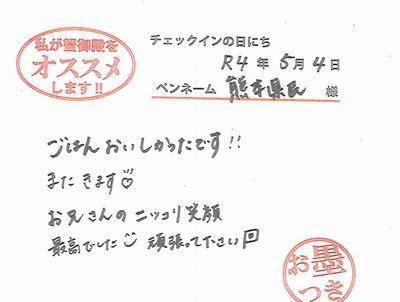 私が蟹御殿を
オススメ
します!!
チェックインの日にち
R4年5月4日
ペンネーム 熊本県民 様
ごはんおいしかったです!!
またきます♡
お兄さんのニッコリ笑顔
最高でした 頑張って下さい
お墨
つき